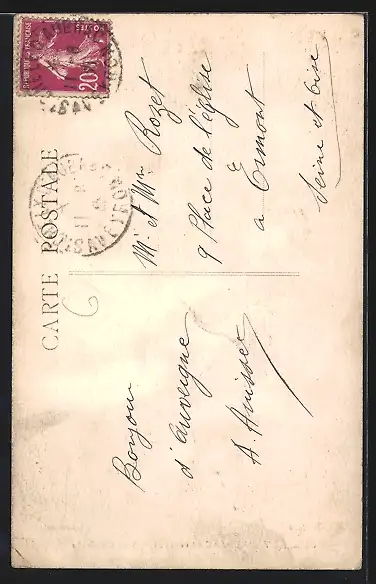 CARTE POSTALE
REPUBLIQUE FRANÇAISE
POSTES
20c
Bonjour
d'Auvergne
A. Auisse
Mr. et Mme Rozet
9 Place de l'église
a Ermont
Seine et Oise